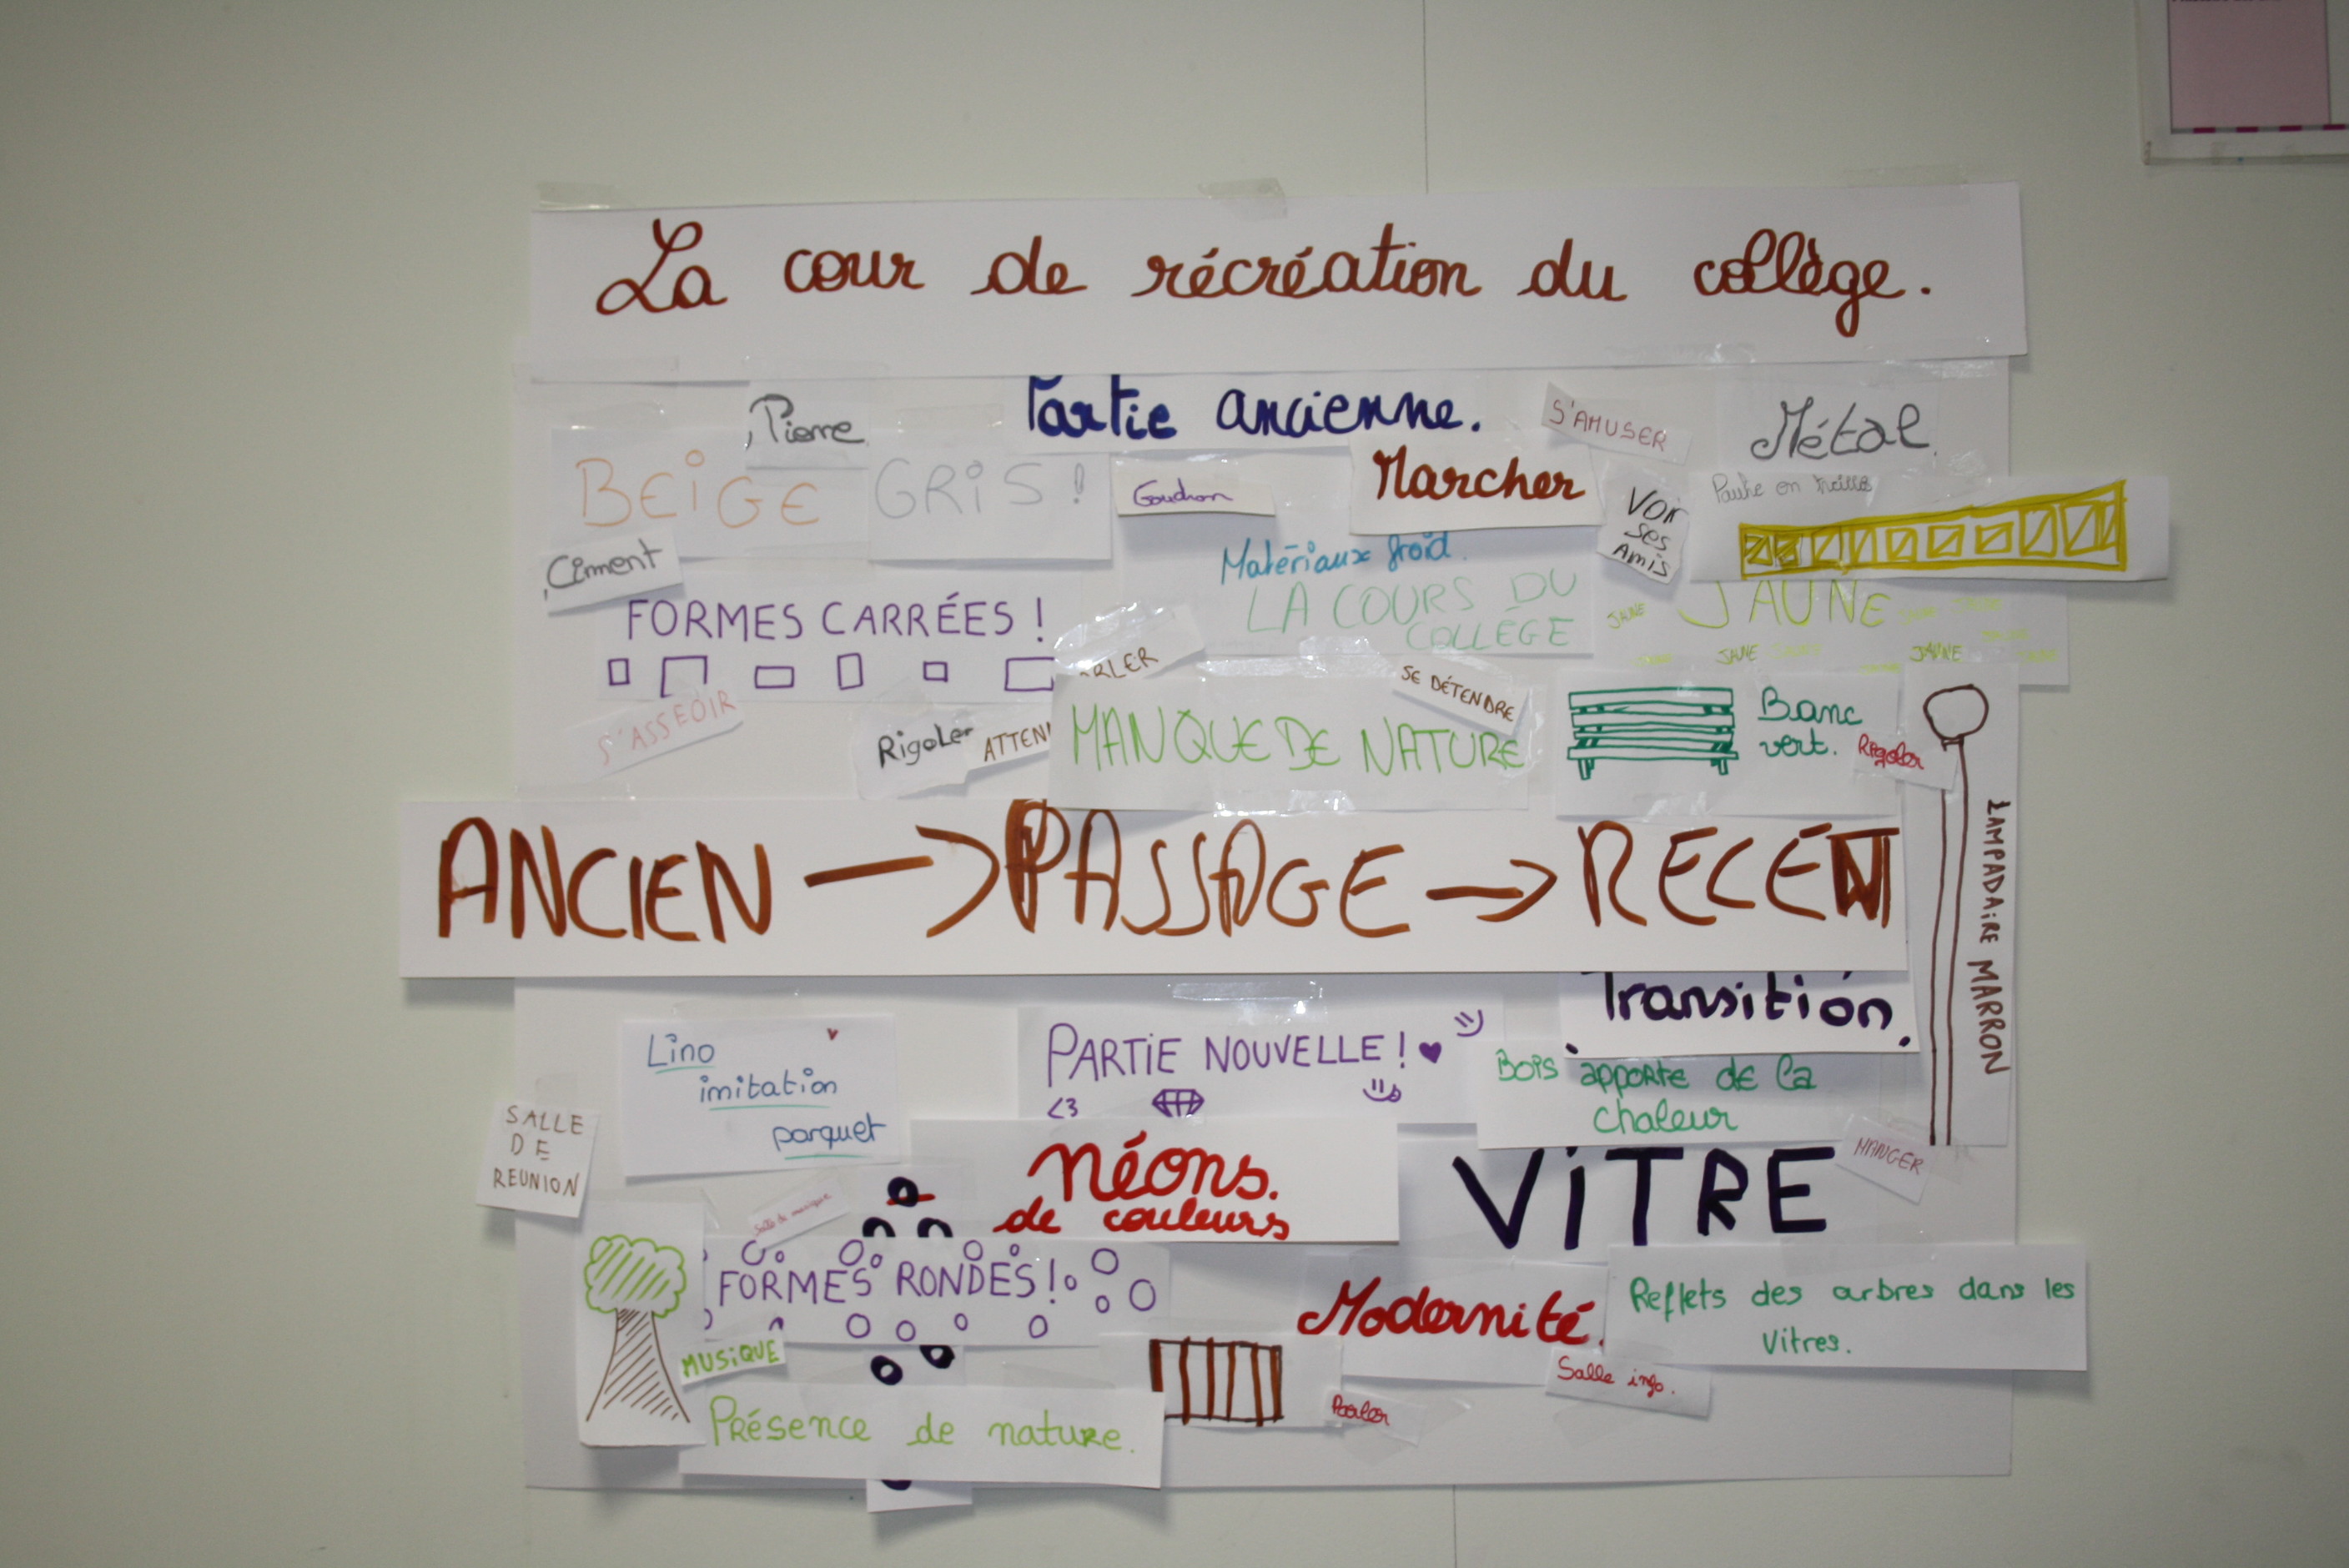 La cour de récréation du collège.
Partie ancienne.
Pierre
S'AMUSER
Métal
BEiGE
GRiS !
Goudron
Marcher
VOIR
ses
AMis
en
Ciment
Matériaux froid
FORMES CARRÉES !
LA COURS DU
COLLÈGE
JAUNE
JAUNE
JAUNE
JAUNE
S'ASSEOIR
RLER
SE DÉTENDRE
Rigoler
ATTEN
MANQUE DE NATURE
Banc
vert.
Rigoler
LAMPADAiRE MARRON
ANCIEN → PASSAGE → RECENT
Transition.
Lino
imitation
parquet
PARTiE NOUVELLE ! ♥
<3
Bois apporte de la
chaleur
SALLE
DE
REUNION
Néons.
de couleurs
ViTRE
MANGER
Salle de musique
FORMES RONDES !
Modernité.
Reflets des arbres dans les
Vitres.
MUSiQUE
Salle info.
Parler
Présence de nature.